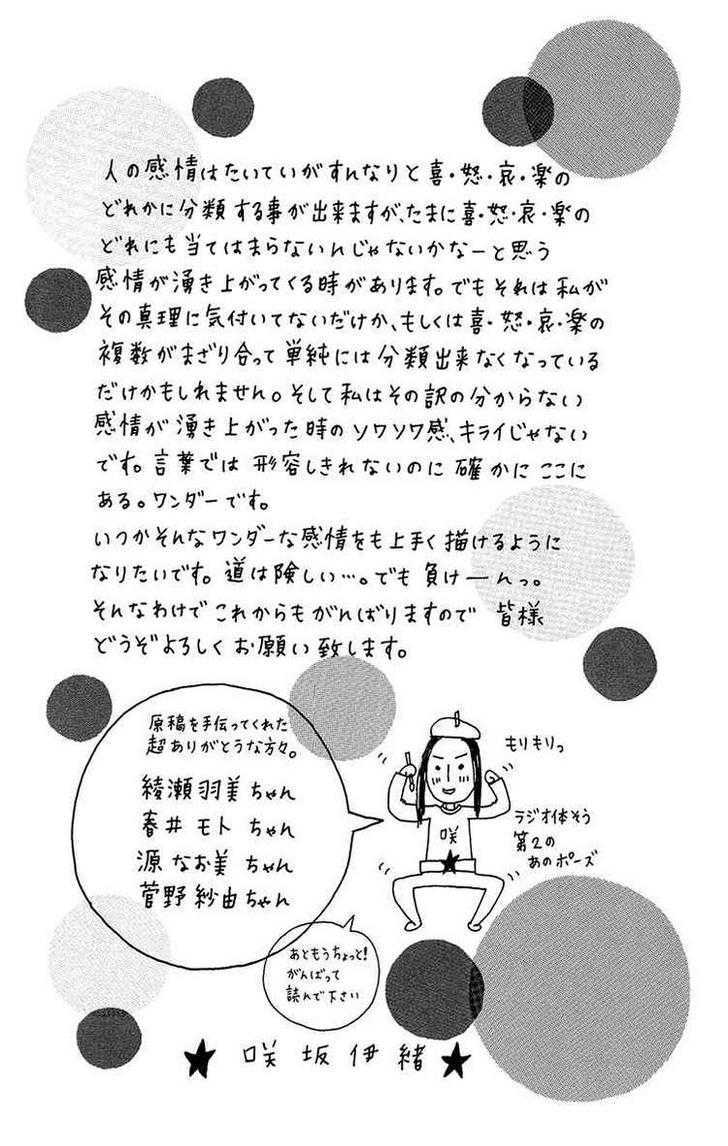 人の感情はたいていがすんなりと喜・怒・哀・楽の
どれかに分類する事が出来ますが、たまに喜・怒・哀・楽の
どれにも当てはまらないんじゃないかなーと思う
感情が湧き上がってくる時があります。でもそれは私が
その真理に気付いてないだけか、もしくは喜・怒・哀・楽の
複数がまざり合って単純には分類出来なくなっている
だけかもしれません。そして私はその訳の分からない
感情が湧き上がった時のソワソワ感、キライじゃない
です。言葉では形容しきれないのに確かにここに
ある。ワンダーです。
いつかそんなワンダーな感情をも上手く描けるように
なりたいです。道は険しい…。でも負けーんっ。
そんなわけでこれからもがんばりますので皆様
どうぞよろしくお願い致します。
原稿を手伝ってくれた
超ありがとうな方々。
綾瀬羽美ちゃん
春井モトちゃん
源なお美ちゃん
菅野紗由ちゃん
もりもりっ
ラジオ体そう
第2の
あのポーズ
咲
あともうちょっと!
がんばって
読んで下さい
★咲坂伊緒★